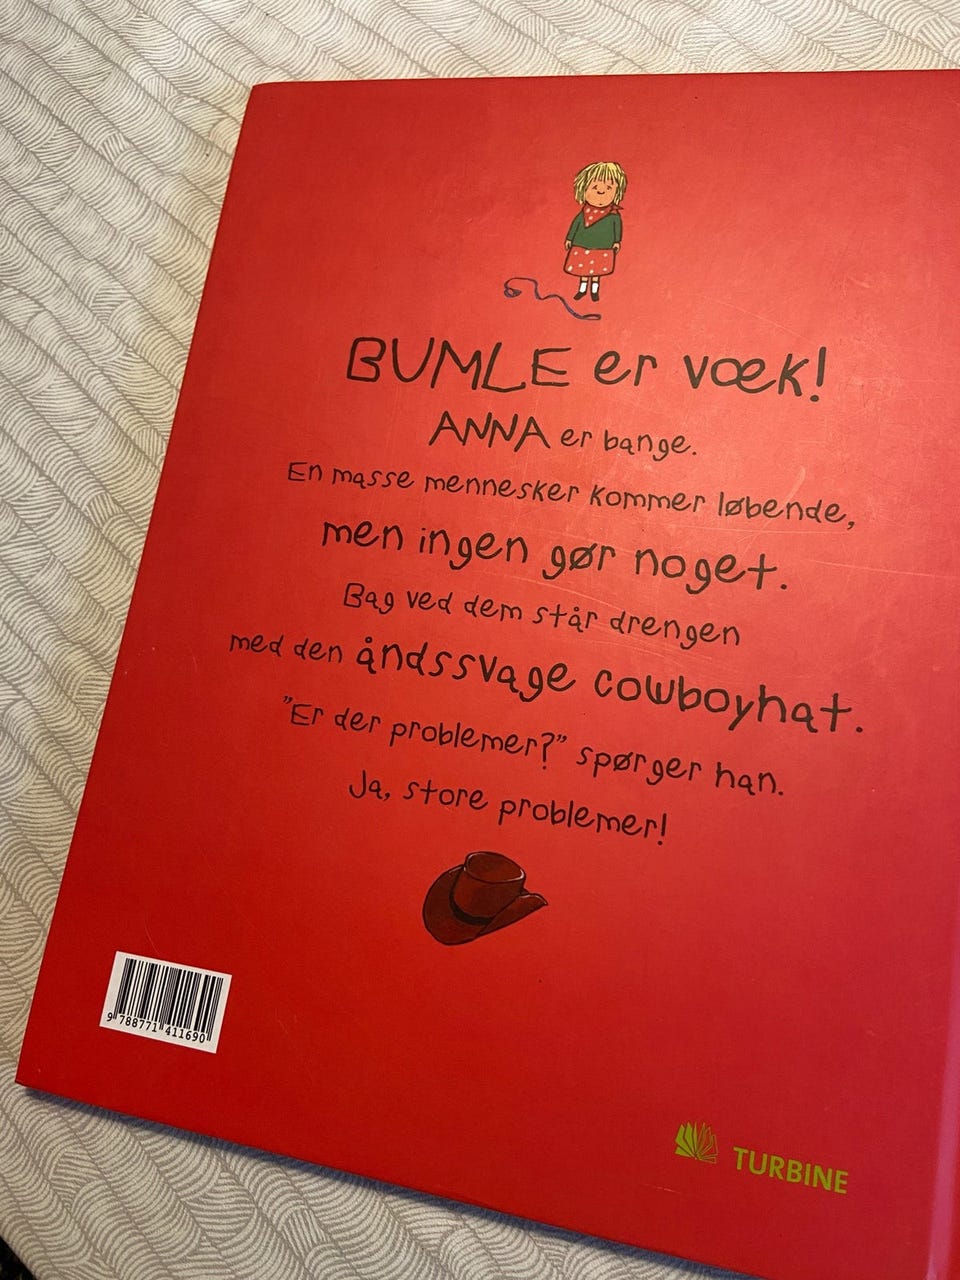 BUMLE er væk!
ANNA er bange.
En masse mennesker kommer løbende,
men ingen gør noget.
Bag ved dem står drengen
med den åndssvage cowboyhat.
"Er der problemer?" spørger han.
Ja, store problemer!
9 788771 411690
TURBINE